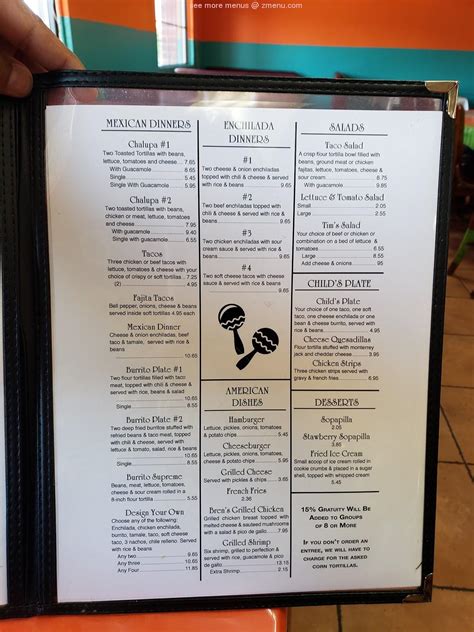 see more menus @ zmenu.com
MEXICAN DINNERS
Chalupa #1
Two Toasted Tortillas with beans,
lettuce, tomatoes and cheese 7.65
With Guacamole 9.65
Single 5.45
With Guacamole 5.95
Chalupa #2
Two toasted tortillas with beans,
chicken or meat, lettuce, tomatoes
and cheese 7.95
With guacamole 9.40
Single with guacamole 6.55
Tacos
Three chicken or beef tacos with
lettuce, tomatoes & cheese with your
choice of crispy or soft tortillas 7.25
(2) 4.95
Fajita Tacos
Bell pepper, onions, cheese & beans
served inside soft tortillas 4.95 each
Mexican Dinner
Cheese & onion enchiladas, beef
taco & tamale, served with rice &
beans
10.65
Burrito Plate #1
Two flour tortillas filled with taco
meat, topped with chili & cheese &
served with rice & beans
10.50
Single 8.55
Burrito Plate #2
Two deep fried burritos stuffed with
refried beans & taco meat, topped
with chili & cheese, garnished with
lettuce & tomato, served with rice
& beans 10.65
Single 8.95
Burrito Supreme
Beans, meat, lettuce, tomatoes,
cheese & sour cream rolled in a
8-inch flour tortilla 6.45
Design Your Own
Choose any of the following:
Enchilada, chicken enchilada,
burrito, tamale, taco, soft cheese
taco, 3 nachos, chile relleno. Served
with rice & beans
Any two 9.95
Any three 10.65
Any Four 11.85
ENCHILADA
DINNERS
#1
Two cheese & onion enchiladas
topped with chili & cheese & served
with rice & beans 9.50
#2
Two beef enchiladas topped with
chili & cheese & served with rice &
beans 9.65
#3
Two chicken enchiladas with sour
cream sauce & served with rice &
beans 9.65
#4
Two soft cheese tacos with cheese
sauce & served with rice & beans
9.65
AMERICAN
DISHES
Hamburger
Lettuce, pickles, onions, tomatoes
& potato chips 5.45
Cheeseburger
Lettuce, pickles, onions, tomatoes,
cheese & potato chips 5.95
Grilled Cheese
Served with chips 4.65
French Fries
2.35
Bren's Grilled Chicken
Grilled chicken breast topped with
melted cheese & sauteed mushrooms
with a salad & pico de gallo 7.95
Grilled Shrimp
Six shrimp, grilled to perfection &
served with rice, guacamole &
pico de gallo 10.95
Extra Shrimp 2.15
SALADS
Taco Salad
A crisp flour tortilla bowl filled with
beans, ground meat or chicken
fajitas, lettuce, tomatoes, cheese &
sour cream 8.75
With guacamole 9.85
Lettuce & Tomato Salad
Small 2.05
Large 2.55
Tim's Salad
Your choice of beef or chicken or
combination on a bed of lettuce &
tomatoes 6.85
Large 8.55
Add cheese & onions .95
CHILD'S PLATE
Child's Plate
Your choice of one taco, one soft
cheese taco, one enchilada or one
bean & cheese burrito, served with
rice & beans 4.95
Cheese Quesadillas
Flour tortilla stuffed with monterrey
jack and cheddar cheese 3.95
Chicken Strips
Three chicken strips served with
gravy & french fries 6.95
DESSERTS
Sopapilla
2.05
Stawberry Sopapilla
3.85
Fried Ice Cream
Small scoop of ice cream rolled in
cookie crumbs & placed in a sugar
shell, topped with whipped cream
3.50
15% GRATUITY WILL BE
ADDED TO GROUPS
OF 8 OR MORE
IF YOU DON'T ORDER AN
ENTREE, WE WILL HAVE TO
CHARGE FOR THE ASKED
CORN TORTILLAS.